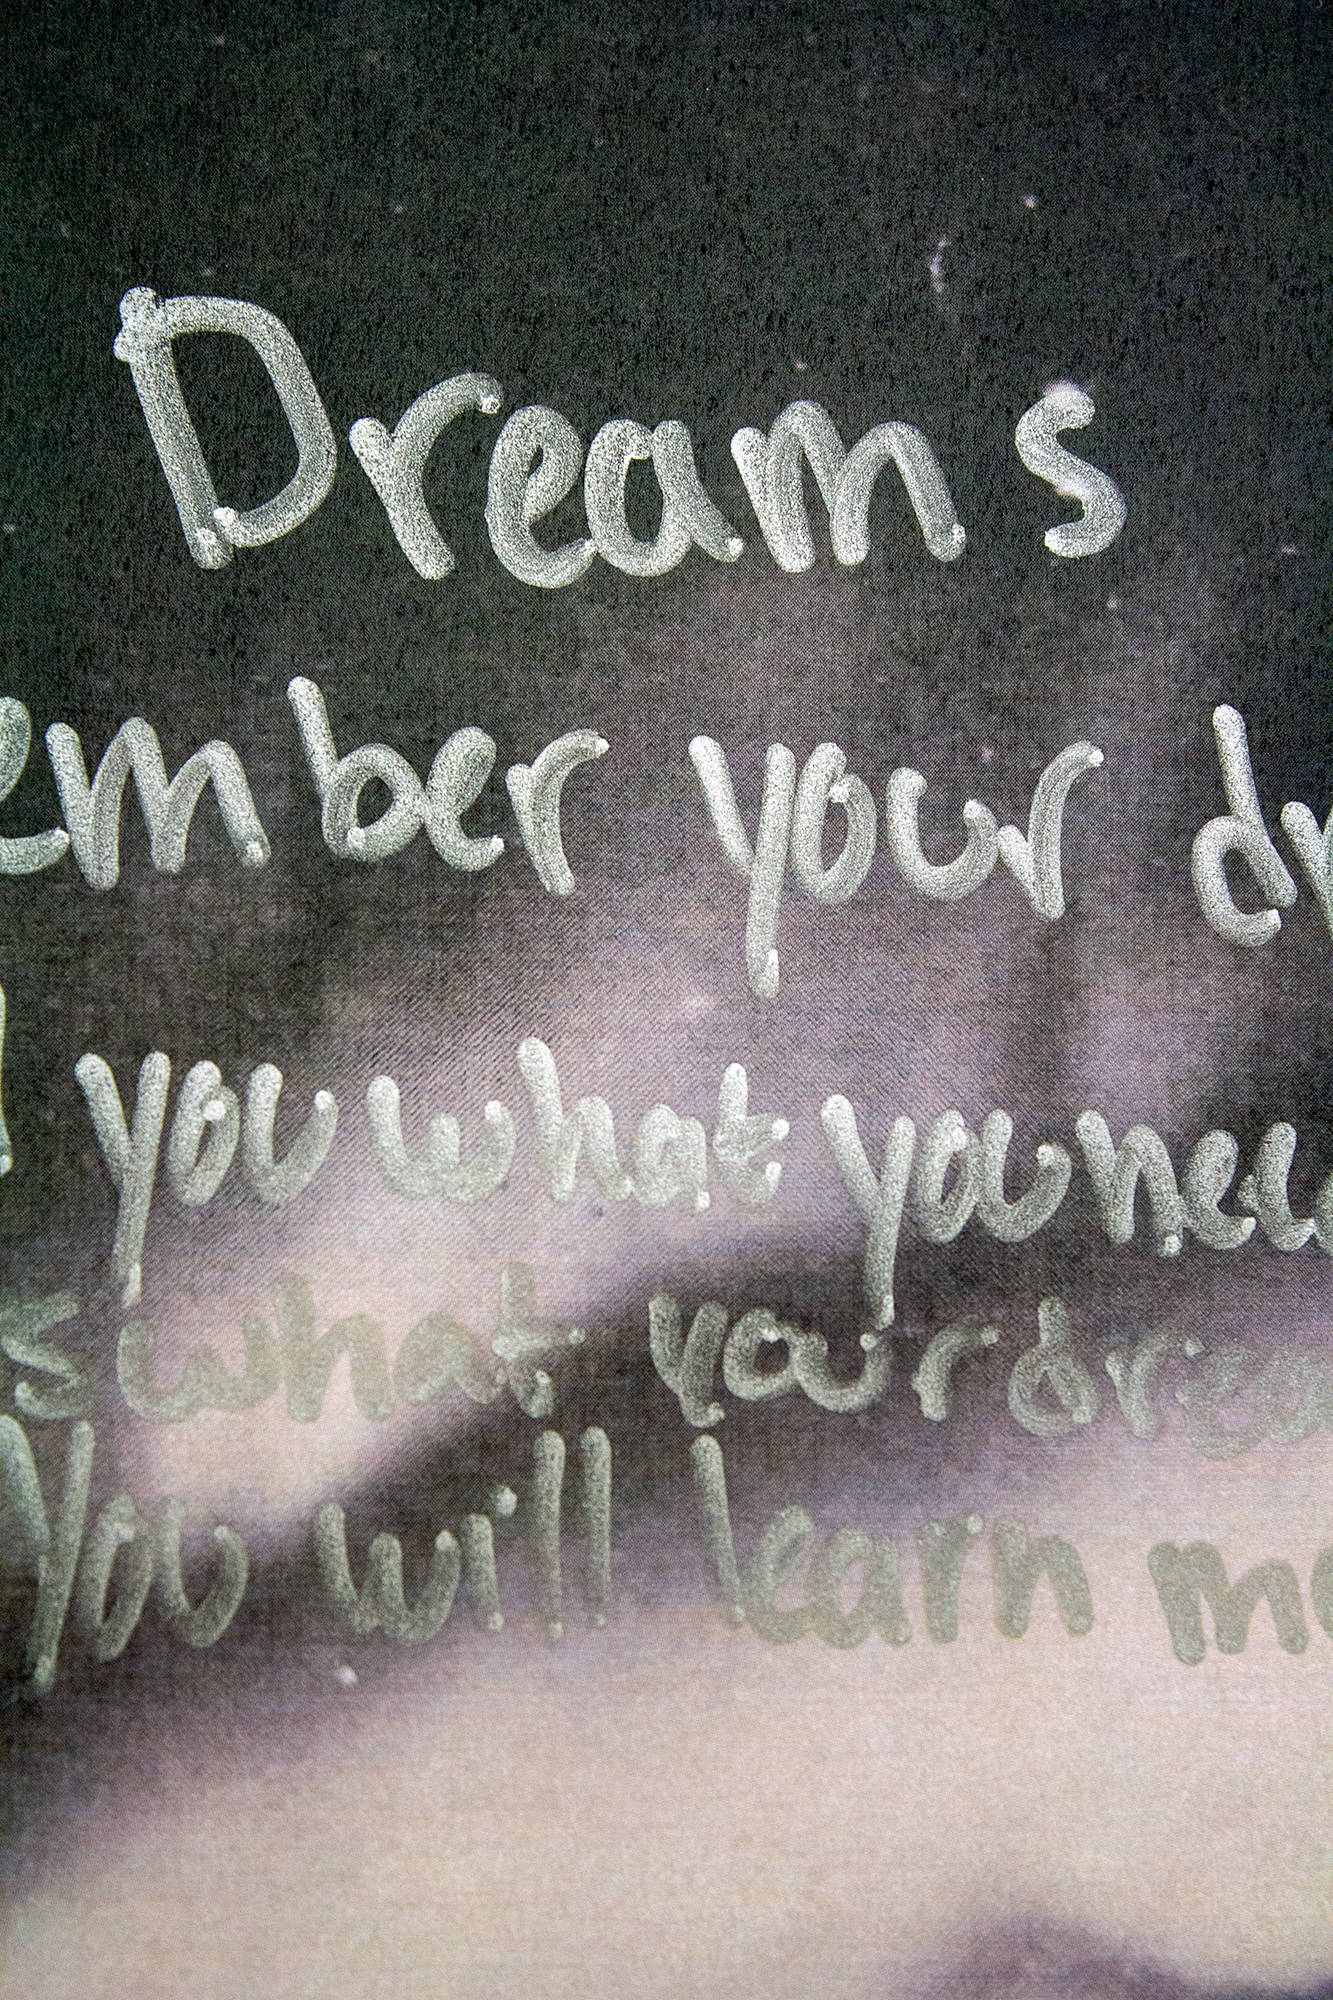 Dreams
ember your dr
you what you nee
s what your drea
you will learn mo